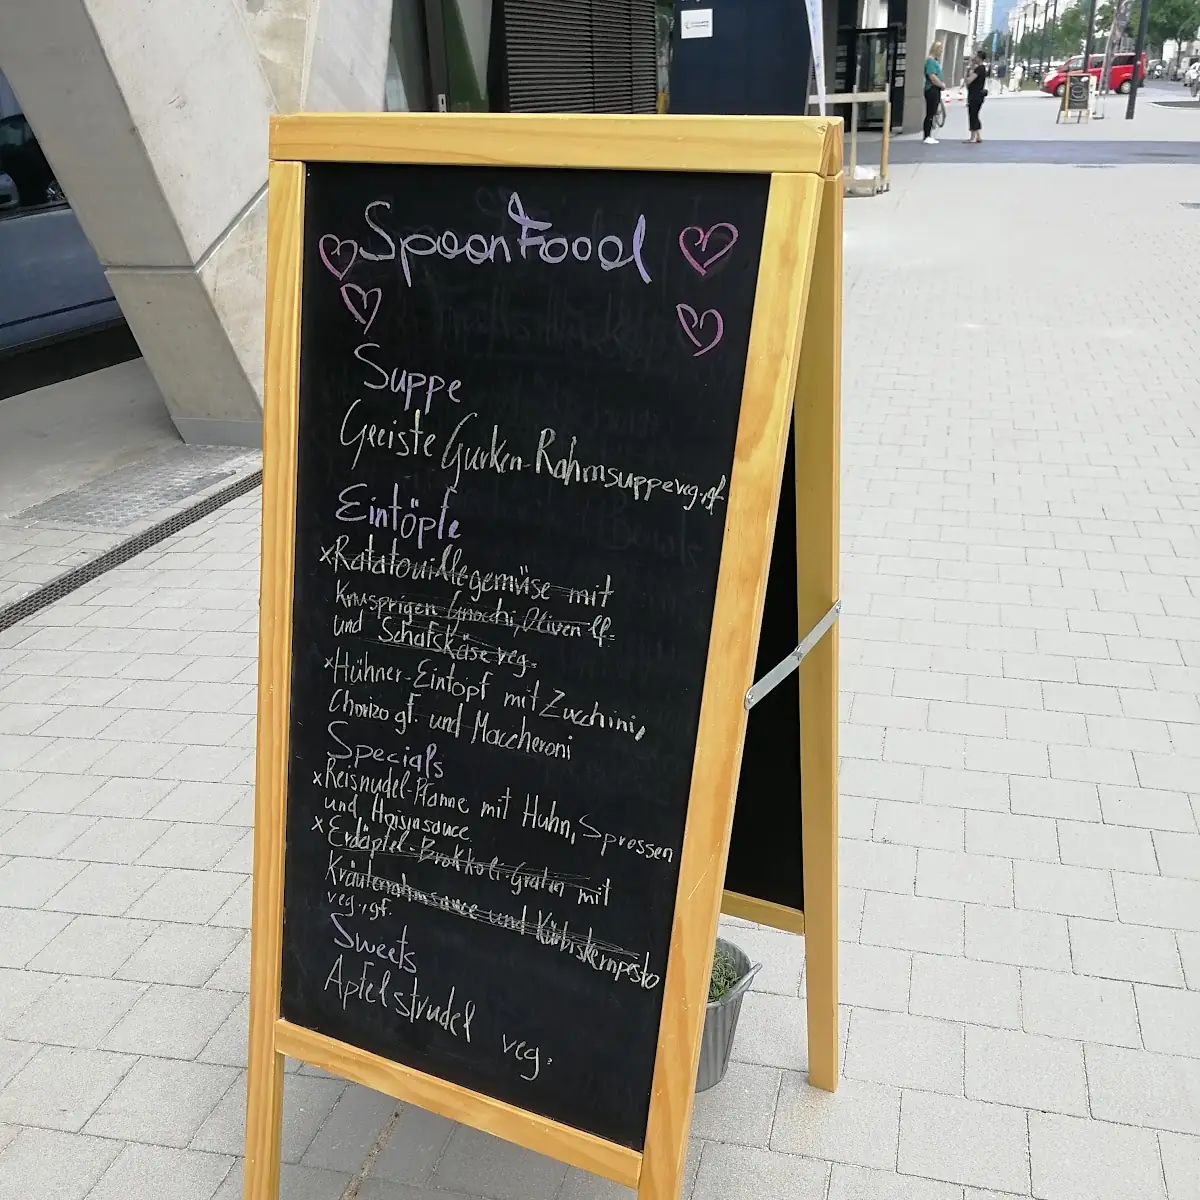 SpoonFood
Suppe
Geeiste Gurken-Rahmsuppe veg., gf.
Eintöpfe
x Ratatouillegemüse mit
Knusprigen Gnocchi, Oliven lf.
und Schafskäse veg.
x Hühner-Eintopf mit Zucchini,
Chorizo gf. und Maccheroni
Specials
x Reisnudel-Pfanne mit Huhn, Sprossen
und Hoisinsauce
x Erdäpfel-Brokkoli-Gratin mit
Kräuterrahmsauce und Kürbiskernpesto
veg., gf.
Sweets
Apfelstrudel veg.